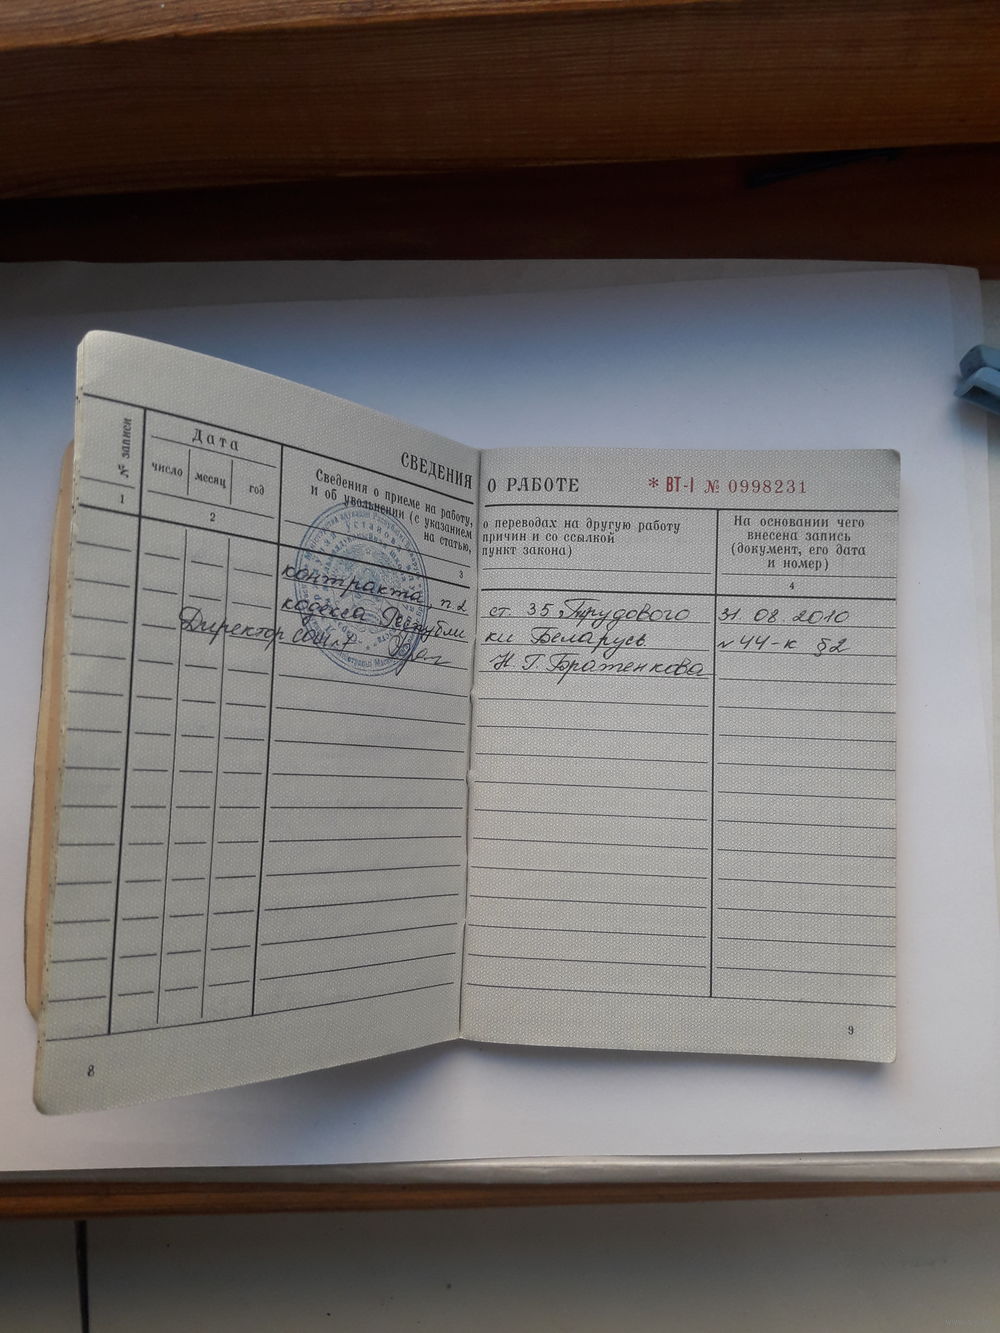 СВЕДЕНИЯ О РАБОТЕ * ВТ-I № 0998231
№ записи
Дата
число
месяц
год
Сведения о приеме на работу, о переводах на другую работу
и об увольнении (с указанием причин и со ссылкой
на статью, пункт закона)
На основании чего
внесена запись
(документ, его дата
и номер)
1
2
3
4
контракта, п. 2 ст. 35 Трудового 31. 08. 2010
кодекса Республики Беларусь № 44-к §2
Директор Н. Г. Браженкова
8
9